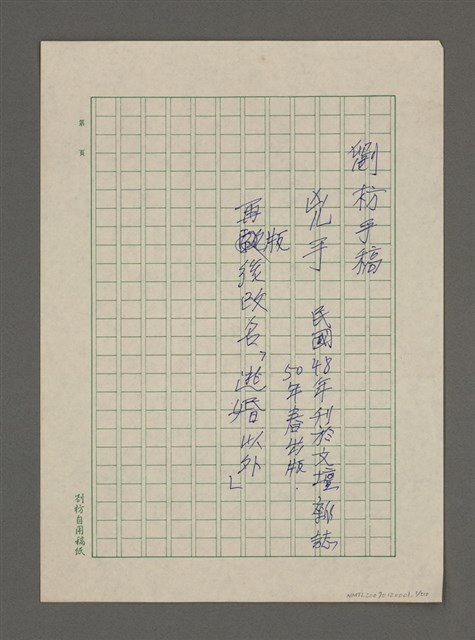 劉枋手稿
兇手
民國48年刊於文壇雜誌
50年春出版.
再版後改名「逃婚以外」
第 頁
劉枋自用稿紙